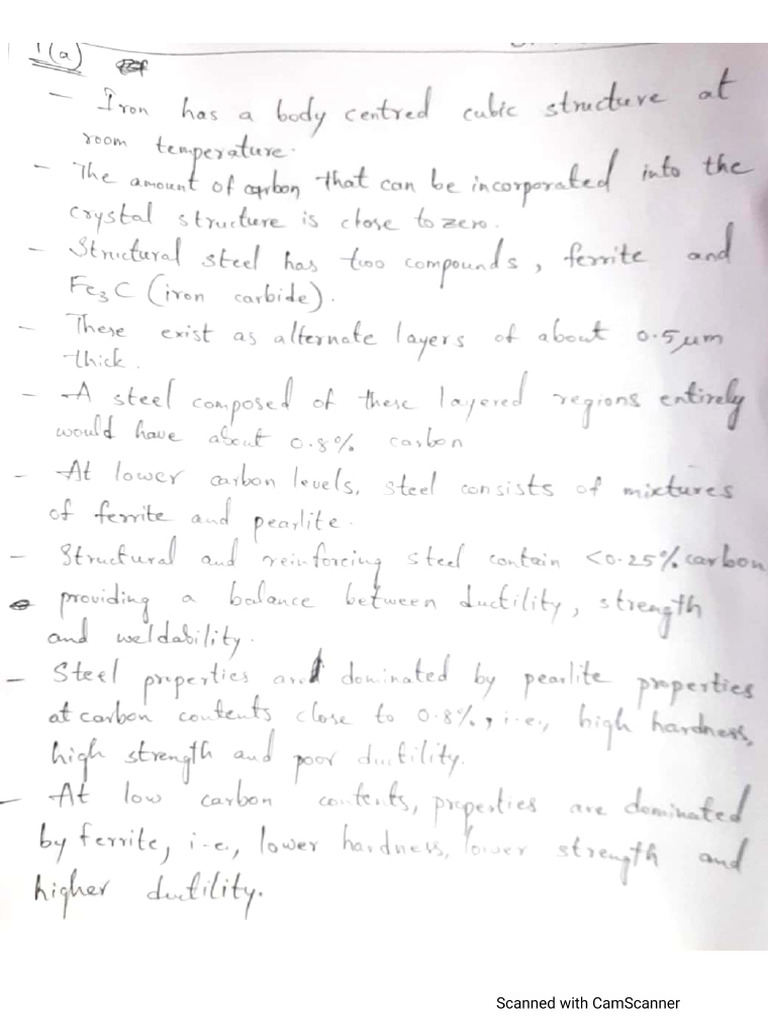 1(a)
- Iron has a body centred cubic structure at
room temperature.
- The amount of carbon that can be incorporated into the
crystal structure is close to zero.
- Structural steel has two compounds, ferrite and
Fe3C (iron carbide).
- These exist as alternate layers of about 0.5 μm
thick.
- A steel composed of these layered regions entirely
would have about 0.8% carbon
- At lower carbon levels, steel consists of mixtures
of ferrite and pearlite.
- Structural and reinforcing steel contain <0.25% carbon
providing a balance between ductility, strength
and weldability.
- Steel properties and dominated by pearlite properties
at carbon contents close to 0.8%, i.e., high hardness,
high strength and poor ductility.
- At low carbon contents, properties are dominated
by ferrite, i.e., lower hardness, lower strength and
higher ductility.
Scanned with CamScanner